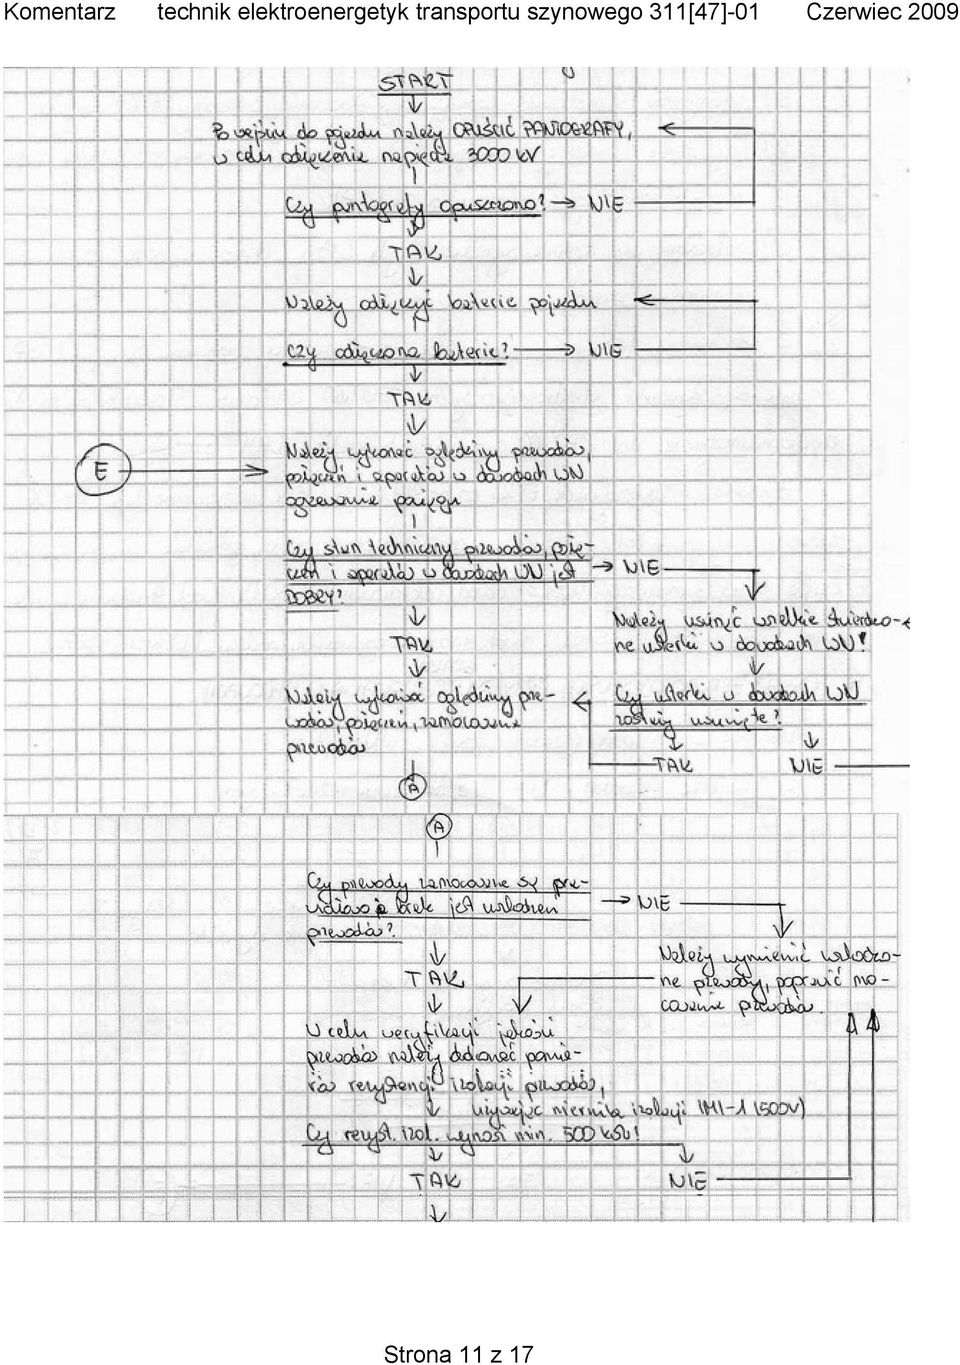 Komentarz technik elektroenergetyk transportu szynowego 311[47]-01 Czerwiec 2009
START
Po wejściu do pojazdu należy OPUŚCIĆ PANTOGRAFY,
w celu odłączenia napięcia 3000 kV
Czy pantografy opuszczono? → NIE
TAK
Należy odłączyć baterie pojazdu
Czy odłączono baterie? → NIE
TAK
E
Należy wykonać oględziny przewodów,
połączeń i aparatów w obwodach WN
ogrzewania pociągu
Czy stan techniczny przewodów, połą-
czeń i aparatów w obwodach WN jest → NIE
DOBRY?
TAK
Należy usunąć wszelkie stwierdzo-
ne usterki w obwodach WN!
Należy wykonać oględziny prze-
wodów, połączeń, zamocowania
przewodów
Czy usterki w obwodach WN
zostały usunięte?
TAK NIE
A
A
Czy przewody zamocowane są pra-
widłowo i brak jest uszkodzeń → NIE
przewodów?
TAK
Należy wymienić uszkodzo-
ne przewody, poprawić mo-
cowanie przewodów.
W celu weryfikacji jakości
przewodów należy dokonać pomia-
rów rezystancji izolacji przewodów,
używając miernika izolacji IMI-1 (500V)
Czy rezyst. izol. wynosi min. 500 kΩ!
TAK NIE
Strona 11 z 17